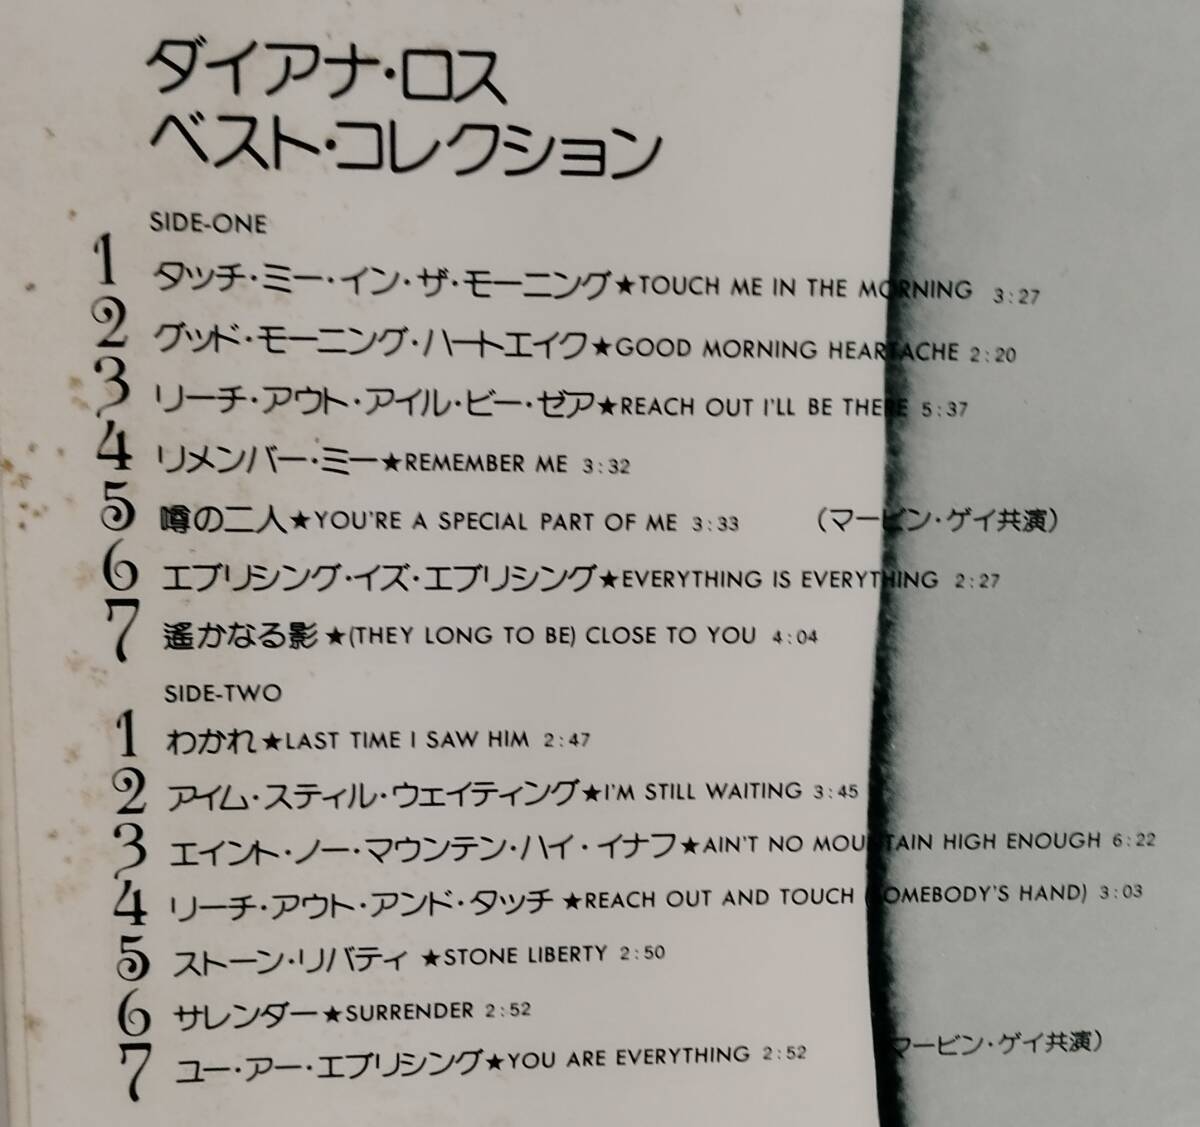 ダイアナ・ロス
ベスト・コレクション
SIDE-ONE
1 タッチ・ミー・イン・ザ・モーニング★TOUCH ME IN THE MORNING 3:27
2 グッド・モーニング・ハートエイク★GOOD MORNING HEARTACHE 2:20
3 リーチ・アウト・アイル・ビー・ゼア★REACH OUT I'LL BE THERE 5:37
4 リメンバー・ミー★REMEMBER ME 3:32
5 噂の二人★YOU'RE A SPECIAL PART OF ME 3:33 （マービン・ゲイ共演）
6 エブリシング・イズ・エブリシング★EVERYTHING IS EVERYTHING 2:27
7 遙かなる影★(THEY LONG TO BE) CLOSE TO YOU 4:04
SIDE-TWO
1 わかれ★LAST TIME I SAW HIM 2:47
2 アイム・スティル・ウェイティング★I'M STILL WAITING 3:45
3 エイント・ノー・マウンテン・ハイ・イナフ★AIN'T NO MOUNTAIN HIGH ENOUGH 6:22
4 リーチ・アウト・アンド・タッチ★REACH OUT AND TOUCH (SOMEBODY'S HAND) 3:03
5 ストーン・リバティ★STONE LIBERTY 2:50
6 サレンダー★SURRENDER 2:52
7 ユー・アー・エブリシング★YOU ARE EVERYTHING 2:52 （マービン・ゲイ共演）